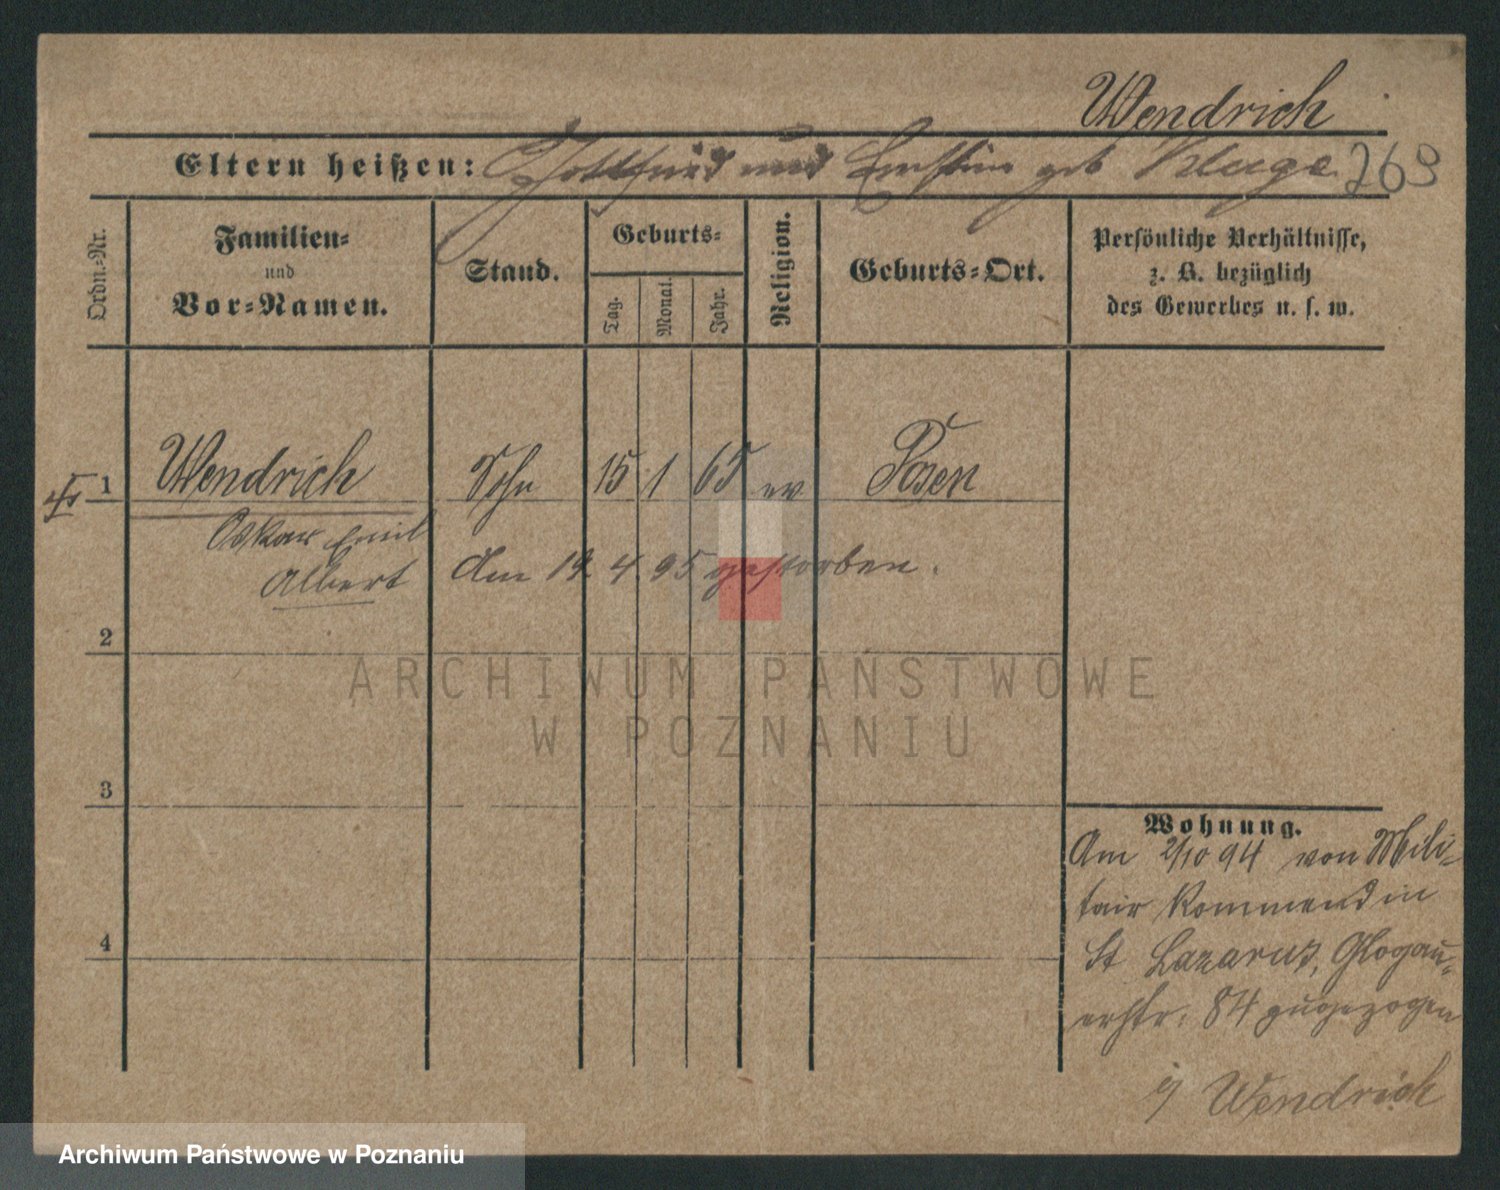 Wendrich
Eltern heißen: Gottfried und Ernstine geb Kluge 269
Ordn.-Nr.
Familien-
und
Vor-Namen.
Stand.
Geburts-
Tag.
Monat.
Jahr.
Religion.
Geburts-Ort.
Persönliche Verhältnisse,
z. B. bezüglich
des Gewerbes u. s. w.
1 Wendrich Sohn 15 1 65 ev Posen
Oskar Emil
Albert Am 19 4 95 gestorben.
2
ARCHIWUM PAŃSTWOWE
W POZNANIU
3
4
Wohnung.
Am 2/10 94 von Mili-
tair Kommend in
St Lazarus, Glogau-
erstr. 84 zugezogen
Wendrich
Archiwum Państwowe w Poznaniu